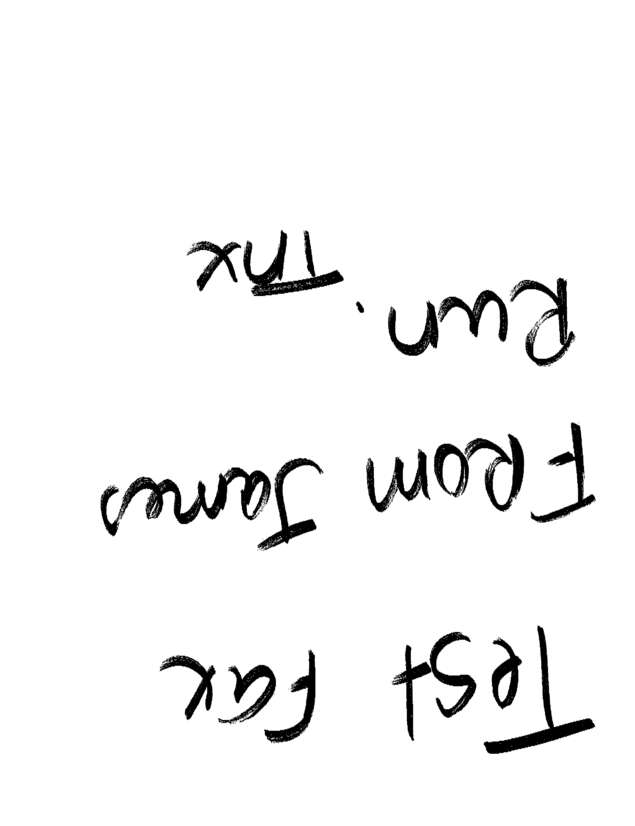 Test Fax
From James
Run. Thx